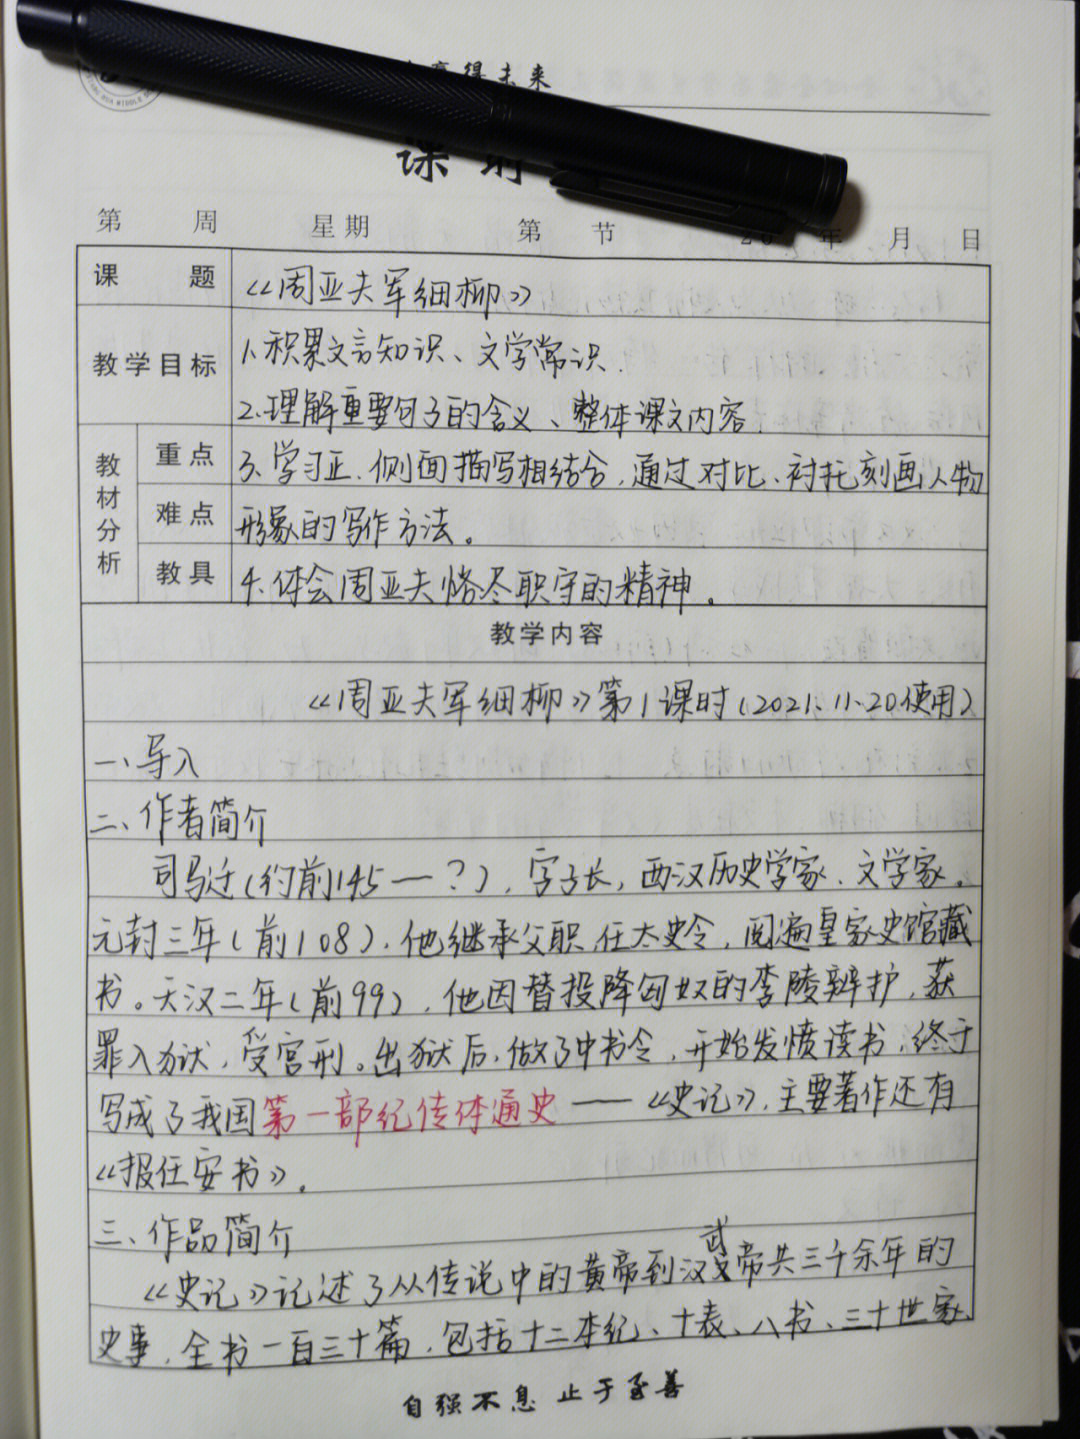 得未来
课
第 周 星期 第 节 年 月 日
课 题 《周亚夫军细柳》
教学目标 1、积累文言知识、文学常识.
2.理解重要句子的含义、整体课文内容.
教材分析 重点 3、学习正、侧面描写相结合,通过对比、衬托刻画人物
难点 形象的写作方法。
教具 4.体会周亚夫恪尽职守的精神。
教学内容
《周亚夫军细柳》第1课时(2021.11.20使用)
一、导入
二、作者简介
司马迁(约前145—?),字子长,西汉历史学家、文学家。
元封三年(前108),他继承父职,任太史令,阅遍皇家史馆藏
书。天汉二年(前99),他因替投降匈奴的李陵辨护,获
罪入狱,受宫刑。出狱后,做了中书令,开始发愤读书,终于
写成了我国第一部纪传体通史——《史记》,主要著作还有
《报任安书》。
三、作品简介
《史记》记述了从传说中的黄帝到汉武帝共三千余年的
史事,全书一百三十篇,包括十二本纪、十表、八书、三十世家、
自强不息 止于至善